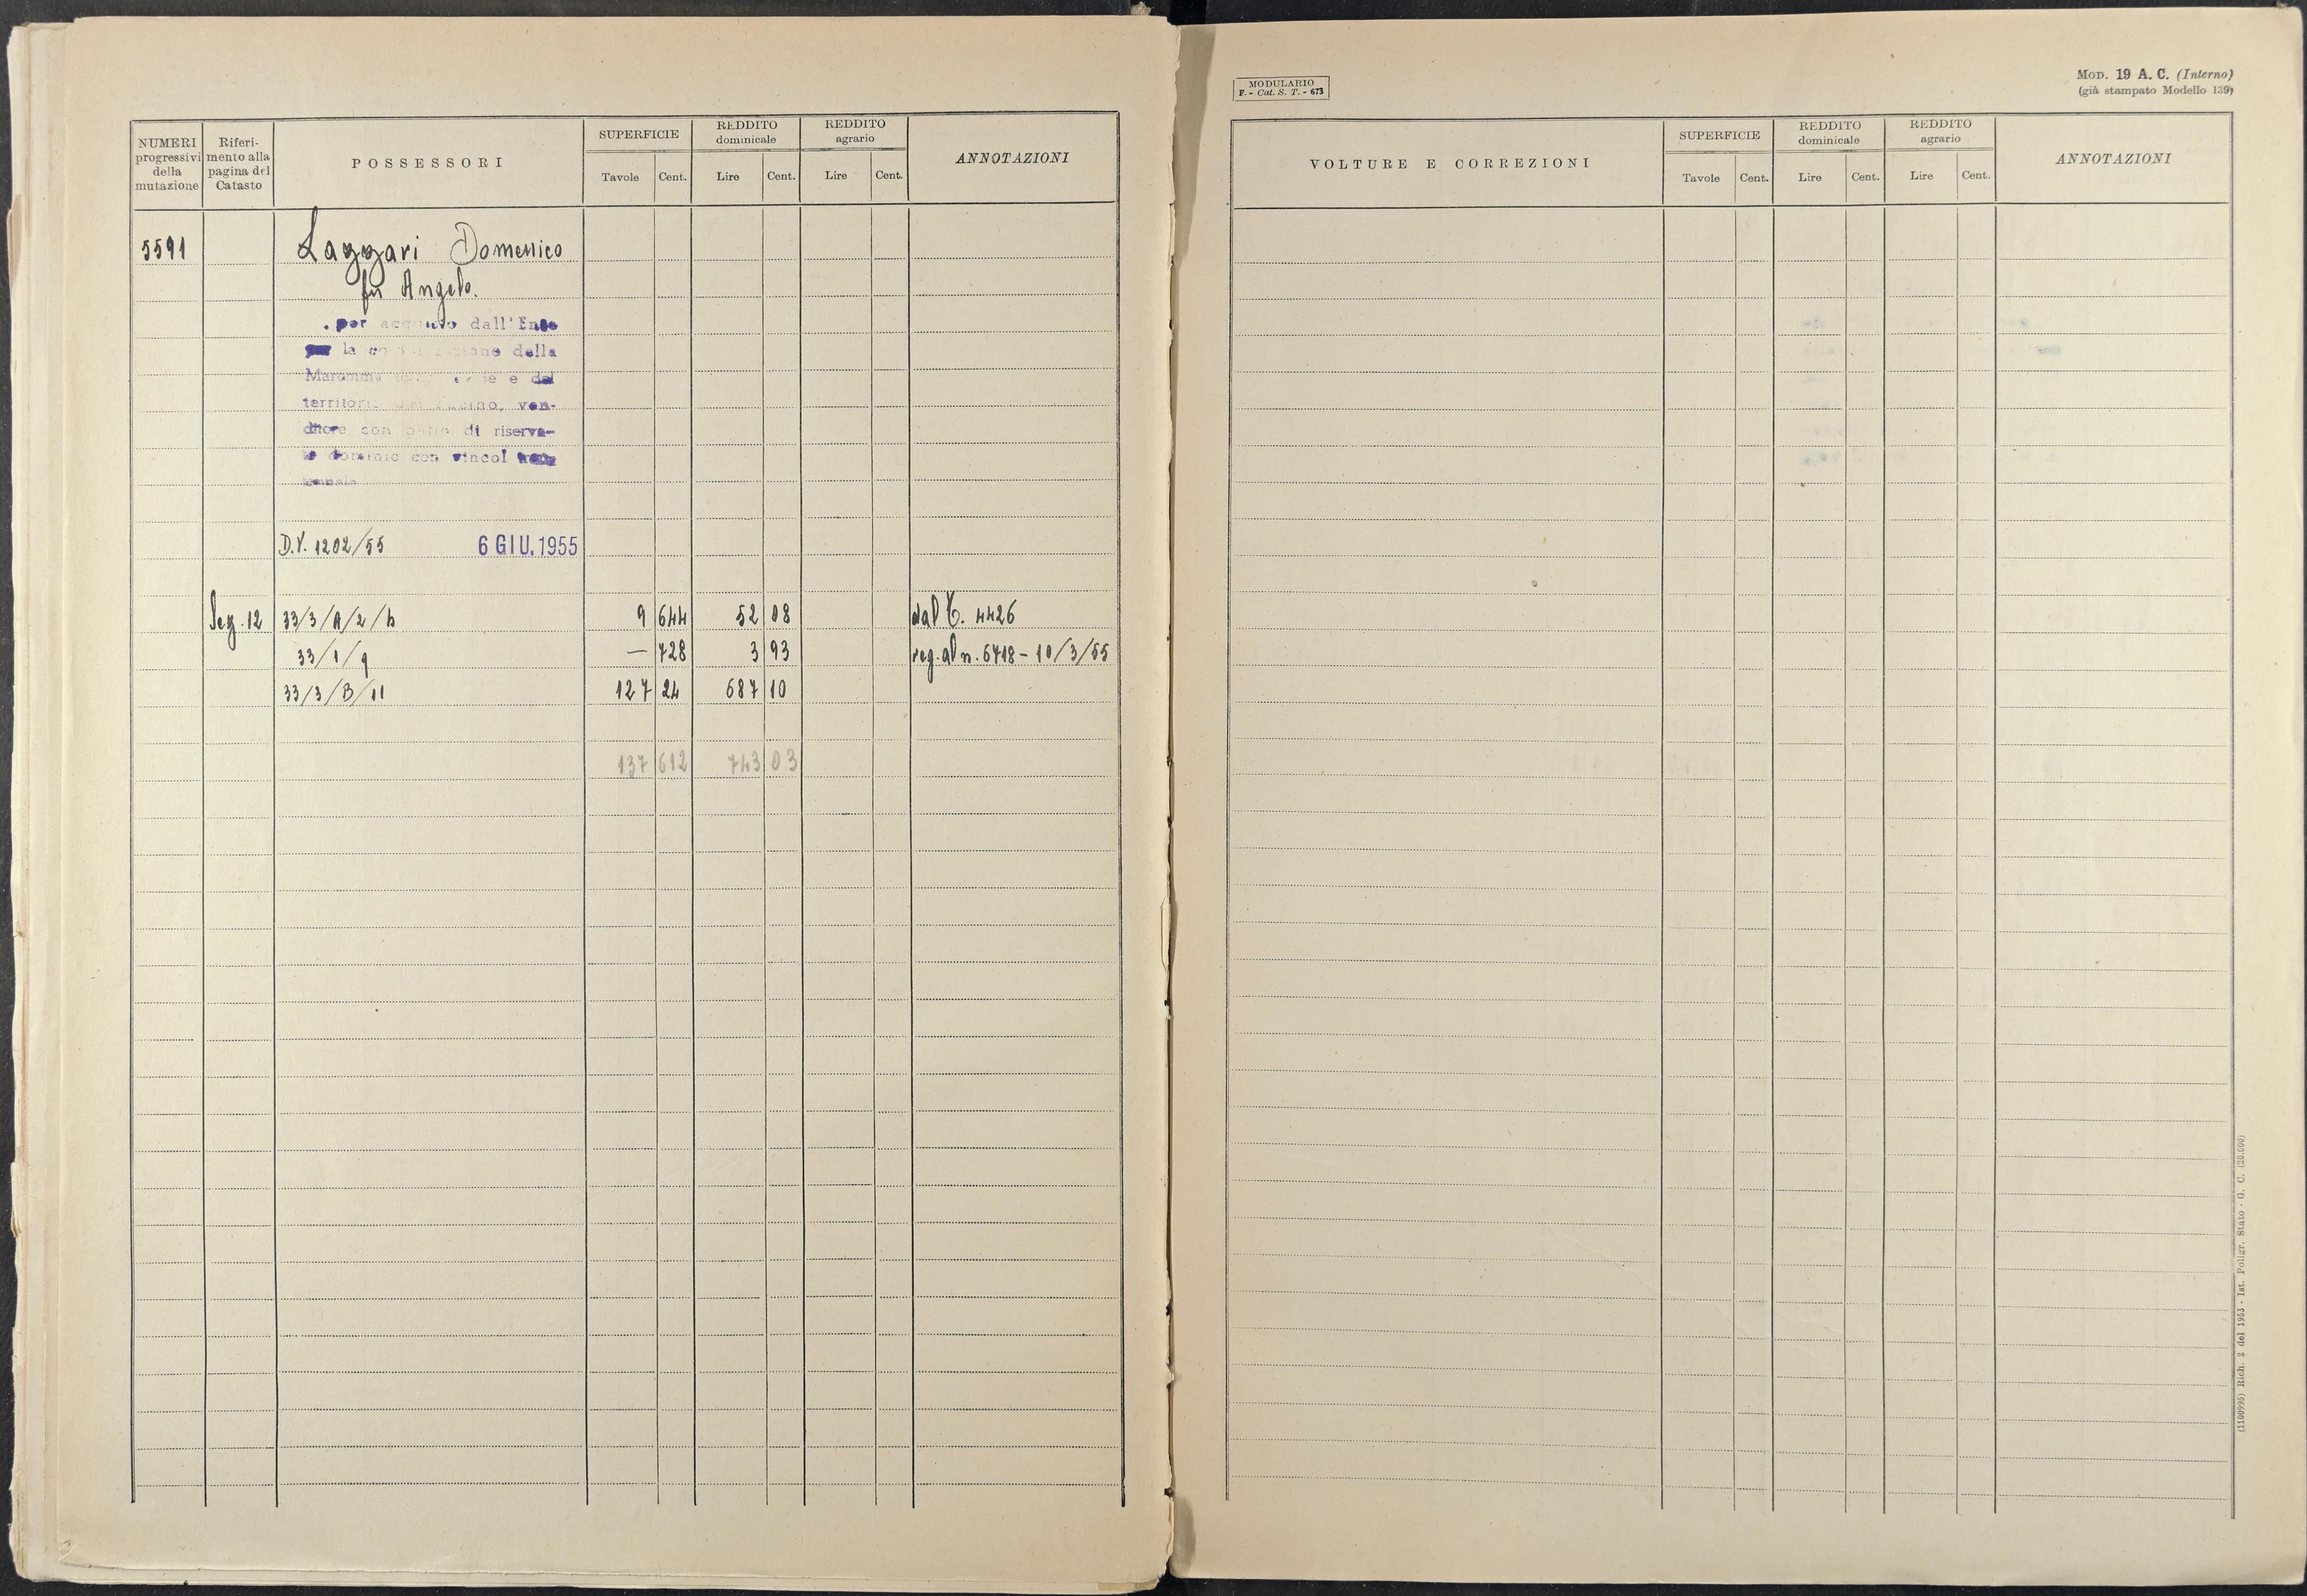 NUMERI progressivi della mutazione
Riferimento alla pagina del Catasto
POSSESSORI
SUPERFICIE
Tavole Cent.
REDDITO dominicale
Lire Cent.
REDDITO agrario
Lire Cent.
ANNOTAZIONI
5591 Lazzari Domenico
fu Angelo.
per dall'Ente
la della
Maremma e del
territorio ven-
ditore con di riserva-
dominio con
D.V. 1202/55 6 GIU. 1955
Sez. 12 33/3/A/2/h 9 644 52 08 dal C. 4426
33/1/9 — 728 3 93 reg. al n. 6718 - 10/3/55
33/3/B/11 127 24 687 10
137 612 743 03
MODULARIO
F. - Cat. S. T. - 673
MOD. 19 A. C. (Interno)
(già stampato Modello 129)
VOLTURE E CORREZIONI
SUPERFICIE
Tavole Cent.
REDDITO dominicale
Lire Cent.
REDDITO agrario
Lire Cent.
ANNOTAZIONI
(1100995) Rich. 2 del 1953 - Ist. Poligr. Stato - G. C. (20.000)